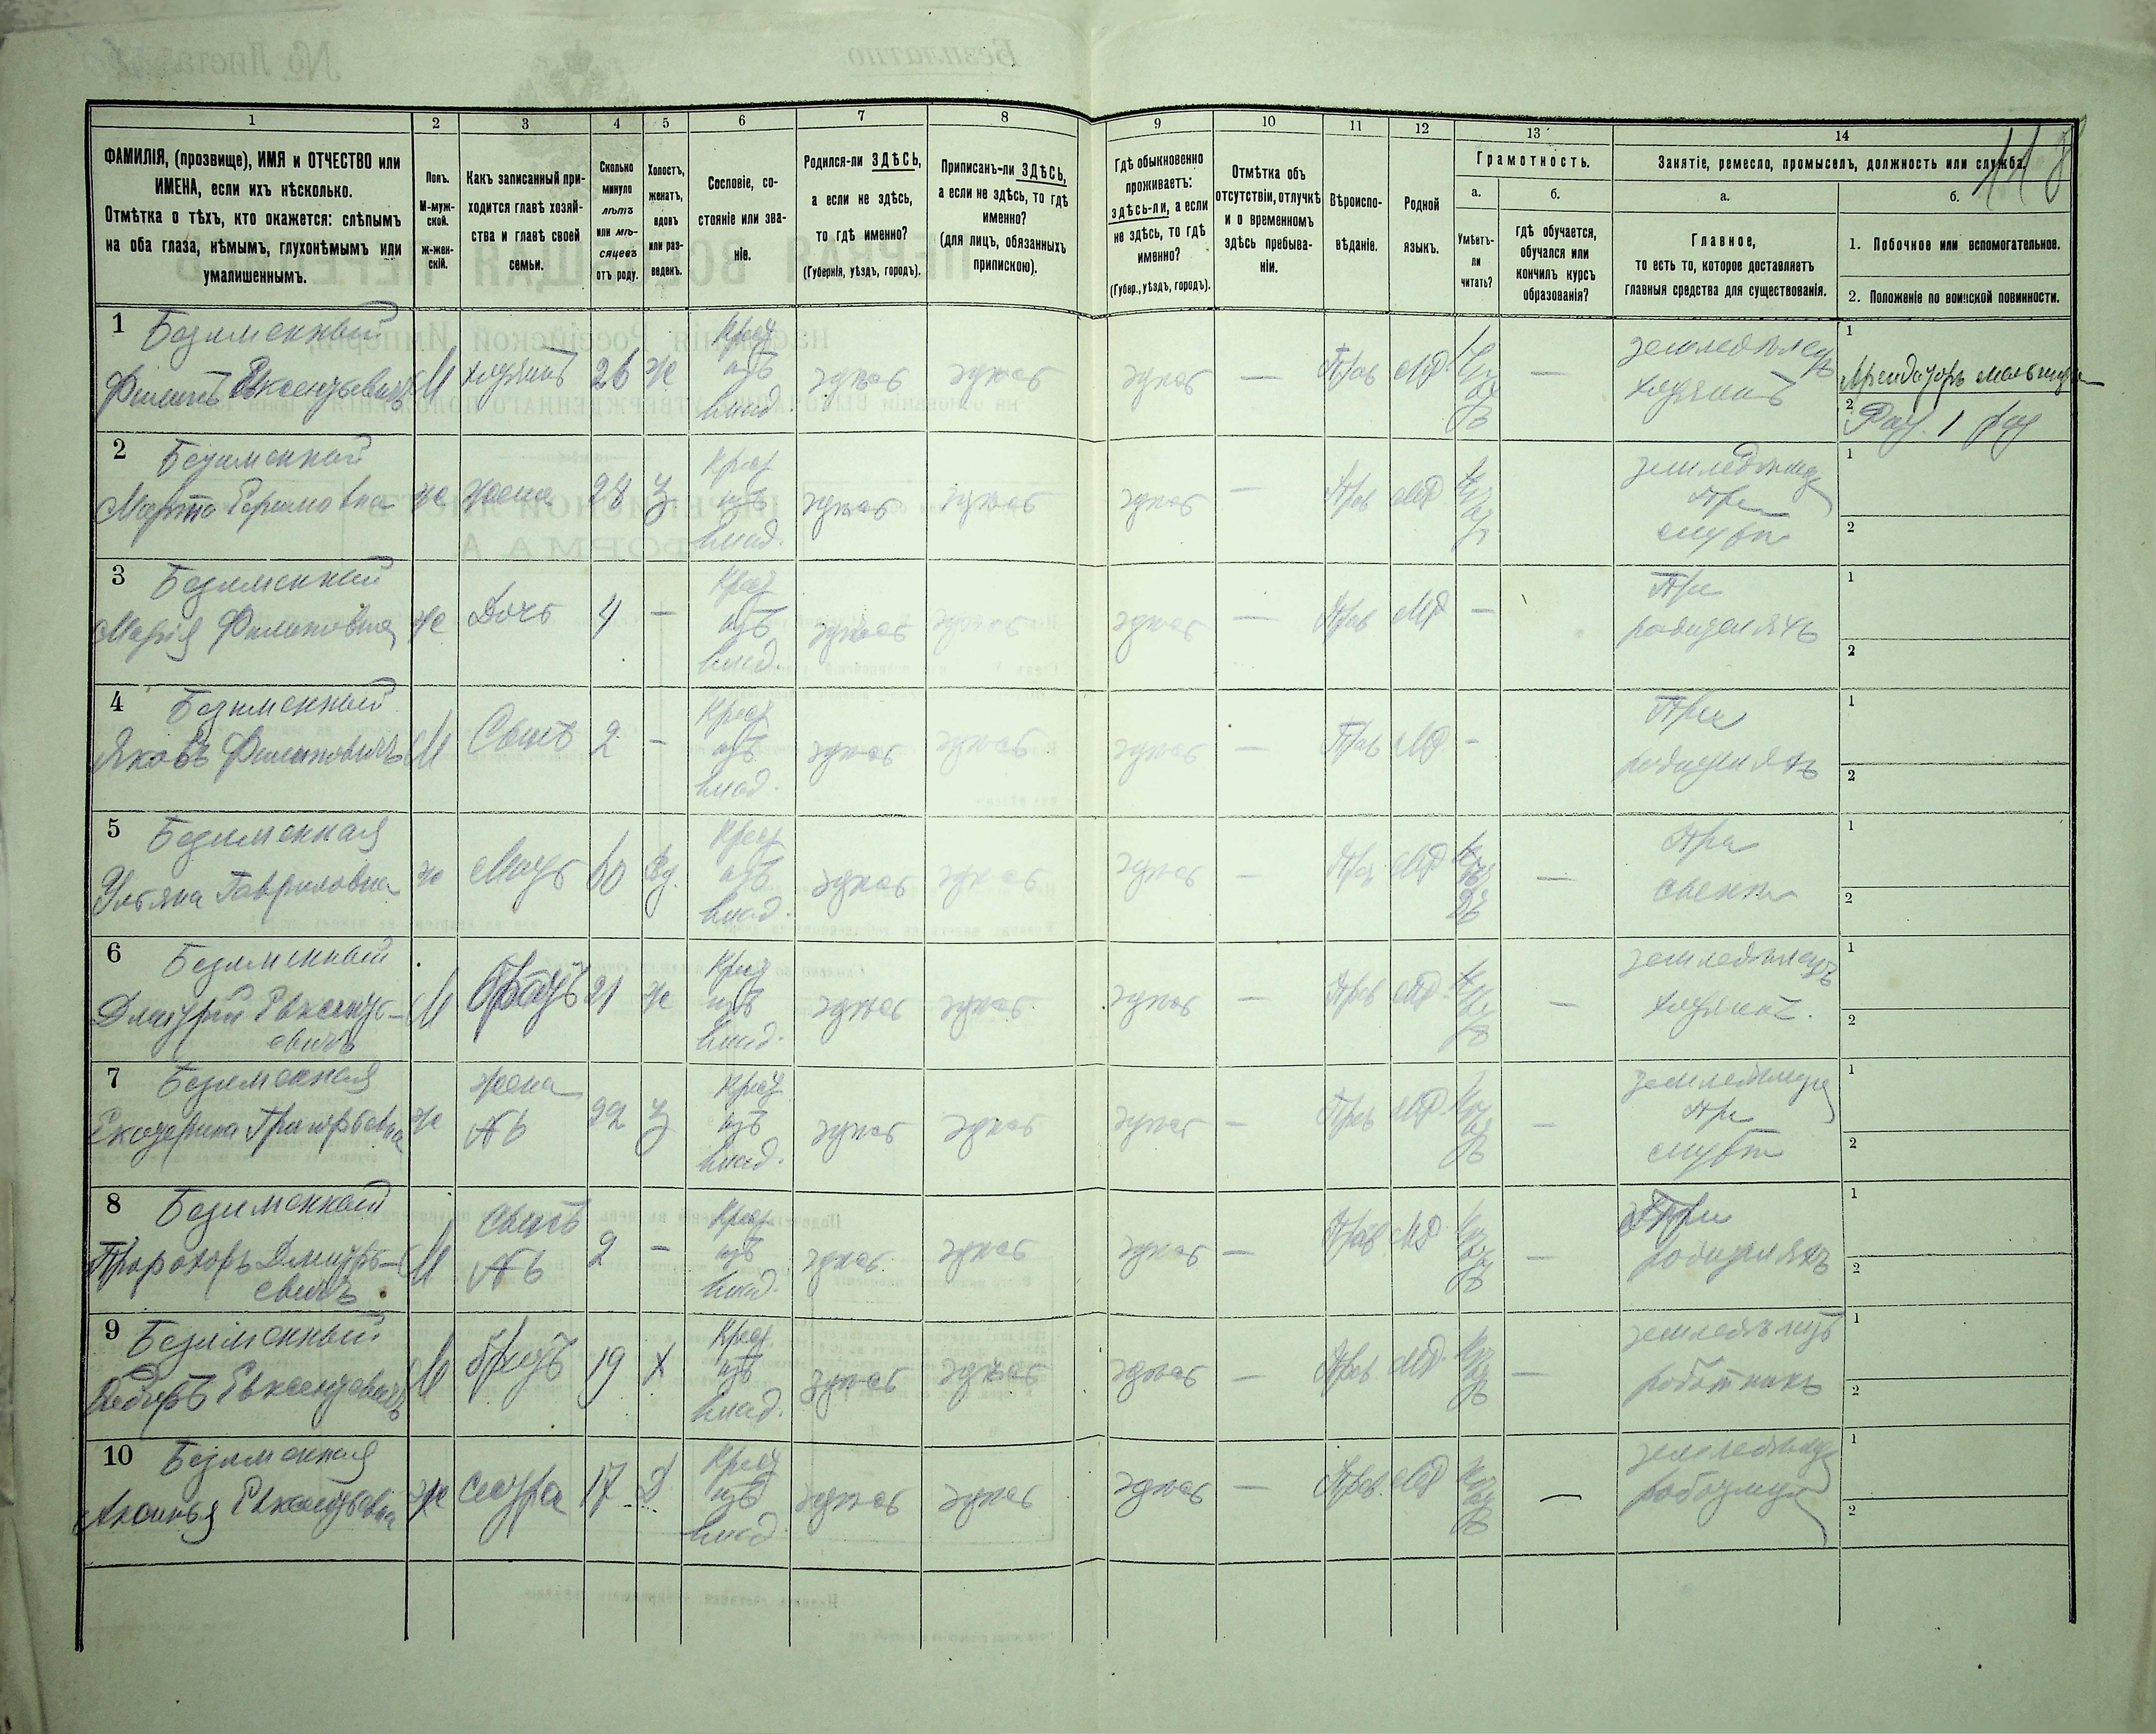 118
1 2 3 4 5 6 7 8 9 10 11 12 13 14
ФАМИЛІЯ, (прозвище), ИМЯ и ОТЧЕСТВО или
ИМЕНА, если ихъ нѣсколько.
Отмѣтка о тѣхъ, кто окажется: слѣпымъ
на оба глаза, нѣмымъ, глухонѣмымъ или
умалишеннымъ.
Полъ.
М-муж-
ской.
ж-жен-
скій.
Какъ записанный при-
ходится главѣ хозяй-
ства и главѣ своей
семьи.
Сколько
минуло
лѣтъ
или мѣ-
сяцевъ
отъ роду.
Холостъ,
женатъ,
вдовъ
или раз-
веденъ.
Сословіе, со-
стояніе или зва-
ніе.
Родился-ли ЗДѢСЬ,
а если не здѣсь,
то гдѣ именно?
(Губернія, уѣздъ, городъ).
Приписанъ-ли ЗДѢСЬ,
а если не здѣсь, то гдѣ
именно?
(для лицъ, обязанныхъ
припискою).
Гдѣ обыкновенно
проживаетъ:
здѣсь-ли, а если
не здѣсь, то гдѣ
именно?
(Губер., уѣздъ, городъ).
Отмѣтка объ
отсутствіи, отлучкѣ
и о временномъ
здѣсь пребыва-
ніи.
Вѣроиспо-
вѣданіе.
Родной
языкъ.
Грамотность.
а.
Умѣетъ-
ли
читать?
б.
гдѣ обучается,
обучался или
кончилъ курсъ
образованія?
Занятіе, ремесло, промыселъ, должность или служба.
а.
Главное,
то есть то, которое доставляетъ
главныя средства для существованія.
б.
1. Побочное или вспомогательное.
2. Положеніе по воинской повинности.
1 Безименный
Филипъ Евксентьевичъ М хозяинъ 26 ж Крест изъ влад. здѣсь здѣсь здѣсь — Прав МР — земледѣлецъ хозяинъ
1 Арендаторъ мельницы
2 Рат. 1 раз
2 Безименная
Марта ж жена 28 з Крест изъ влад. здѣсь здѣсь здѣсь — Прав МР земледѣлец при
1
2
3 Безименная
Марія Филиповна ж Дочь 4 — Крест изъ влад. здѣсь здѣсь здѣсь — Прав МР — При родителяхъ
1
2
4 Безименный
Яковъ Филиповичъ М Сынъ 2 - Крест изъ влад. здѣсь здѣсь здѣсь — Прав МР - При родителяхъ
1
2
5 Безименная
Ульяна Гавриловна ж Мать 60 Вд. Крест изъ влад. здѣсь здѣсь здѣсь — Прав МР — При
1
2
6 Безименный
Дмитрій Евксенть-
евичъ М братъ 21 ж Крест изъ влад. здѣсь здѣсь здѣсь — Прав МР — земледѣлецъ хозяинъ.
1
2
7 Безименная
Екатерина Григорьевна ж жена 22 з Крест изъ влад. здѣсь здѣсь здѣсь — Прав МР — земледѣлец при
1
2
8 Безименный
Прохоръ Дмитрь-
евичъ М Сынъ 2 - Крест изъ влад. здѣсь здѣсь здѣсь — Прав МР — При родителяхъ
1
2
9 Безименный
Евксентьевичъ М братъ 19 Х Крест изъ влад. здѣсь здѣсь здѣсь — Прав МР — земледѣлецъ работникъ
1
2
10 Безименная
Аксинья Евксентьевна ж сестра 17 Д Крест изъ влад. здѣсь здѣсь здѣсь — Прав МР — земледѣлец
1
2